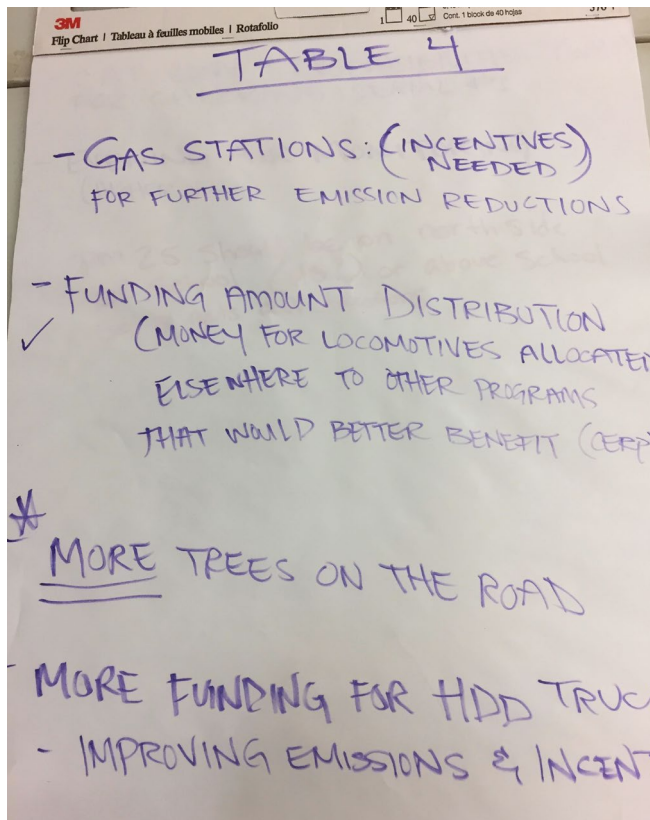 3M
Flip Chart | Tableau à feuilles mobiles | Rotafolio
1 40 Cont. 1 block de 40 hojas
TABLE 4
- GAS STATIONS: (INCENTIVES NEEDED)
FOR FURTHER EMISSION REDUCTIONS
- FUNDING AMOUNT DISTRIBUTION
(MONEY FOR LOCOMOTIVES ALLOCATED
ELSEWHERE TO OTHER PROGRAMS
THAT WOULD BETTER BENEFIT (CERP
MORE TREES ON THE ROAD
- MORE FUNDING FOR HDD TRUC
- IMPROVING EMISSIONS & INCENT